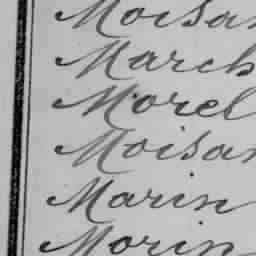 Moisan
March
Morel
Moisan
Marin
Morin